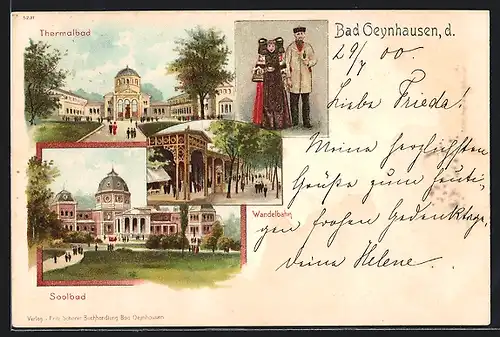 5231
Thermalbad
Bad Oeynhausen, d.
29/7 00.
Liebe Frieda!
Meine herzlichsten
Grüße zum heuti-
gen frohen Gedenktage,
deine Helene.
Wandelbahn
Soolbad
Verlag - Fritz Scherer Buchhandlung Bad Oeynhausen